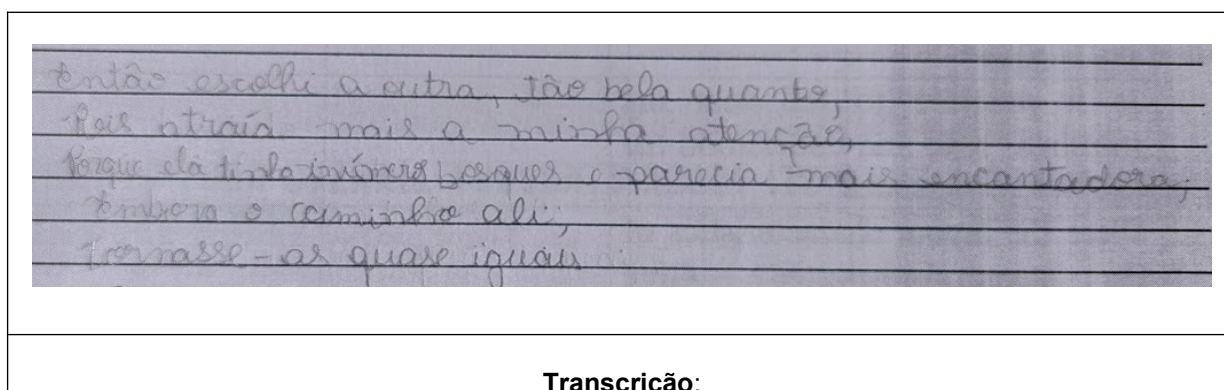 Então escolhi a outra, tão bela quanto,
Pois atraía mais a minha atenção,
Porque ela tinha inúmeros bosques e parecia mais encantadora;
Embora o caminho ali,
Tornasse-as quase iguais.
Transcrição: